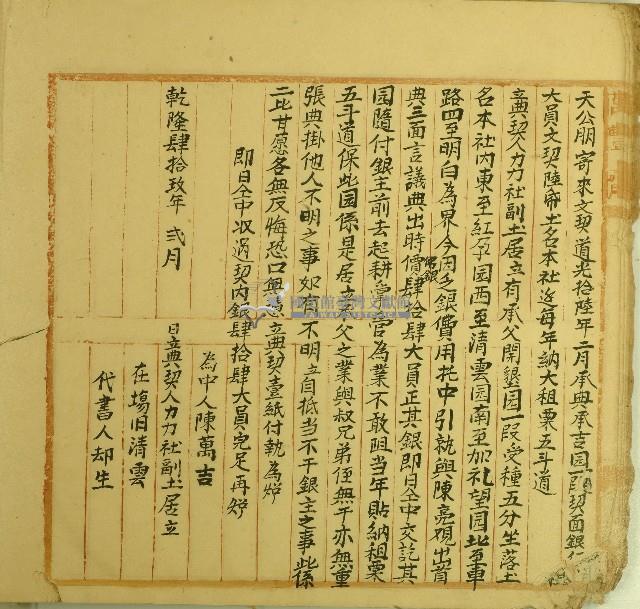 天公朋寄來文契道光拾陸年二月承典承吉园一段契面銀
大員文契陸帋土名本社边每年納大租粟五斗道
立典契人力力社副土居立有承父開墾园一段受種五分坐落土
名本社内東至紅孕园西至清雲园南至加礼望园北至車
路四至明白為界今因乏銀費用托中引就與陳亮硯出首
典三面言議典出時價佛銀肆拾肆大員正其銀即日仝中交訖其
园隨付銀主前去起耕掌管為業不敢阻当年貼納租粟
五斗道保此园係是居立父之業與叔兄弟侄無干亦無重
張典掛他人不明之事如有不明立自抵当不干銀主之事此係
二比甘愿各無反悔恐口無憑立典契壹紙付執為炤
即日仝中收過契内銀肆拾肆大員完足再炤
為中人陳萬吉
乾隆肆拾玖年 弍月 日立典契人力力社副土居立
在塲旧清雲
代書人却生